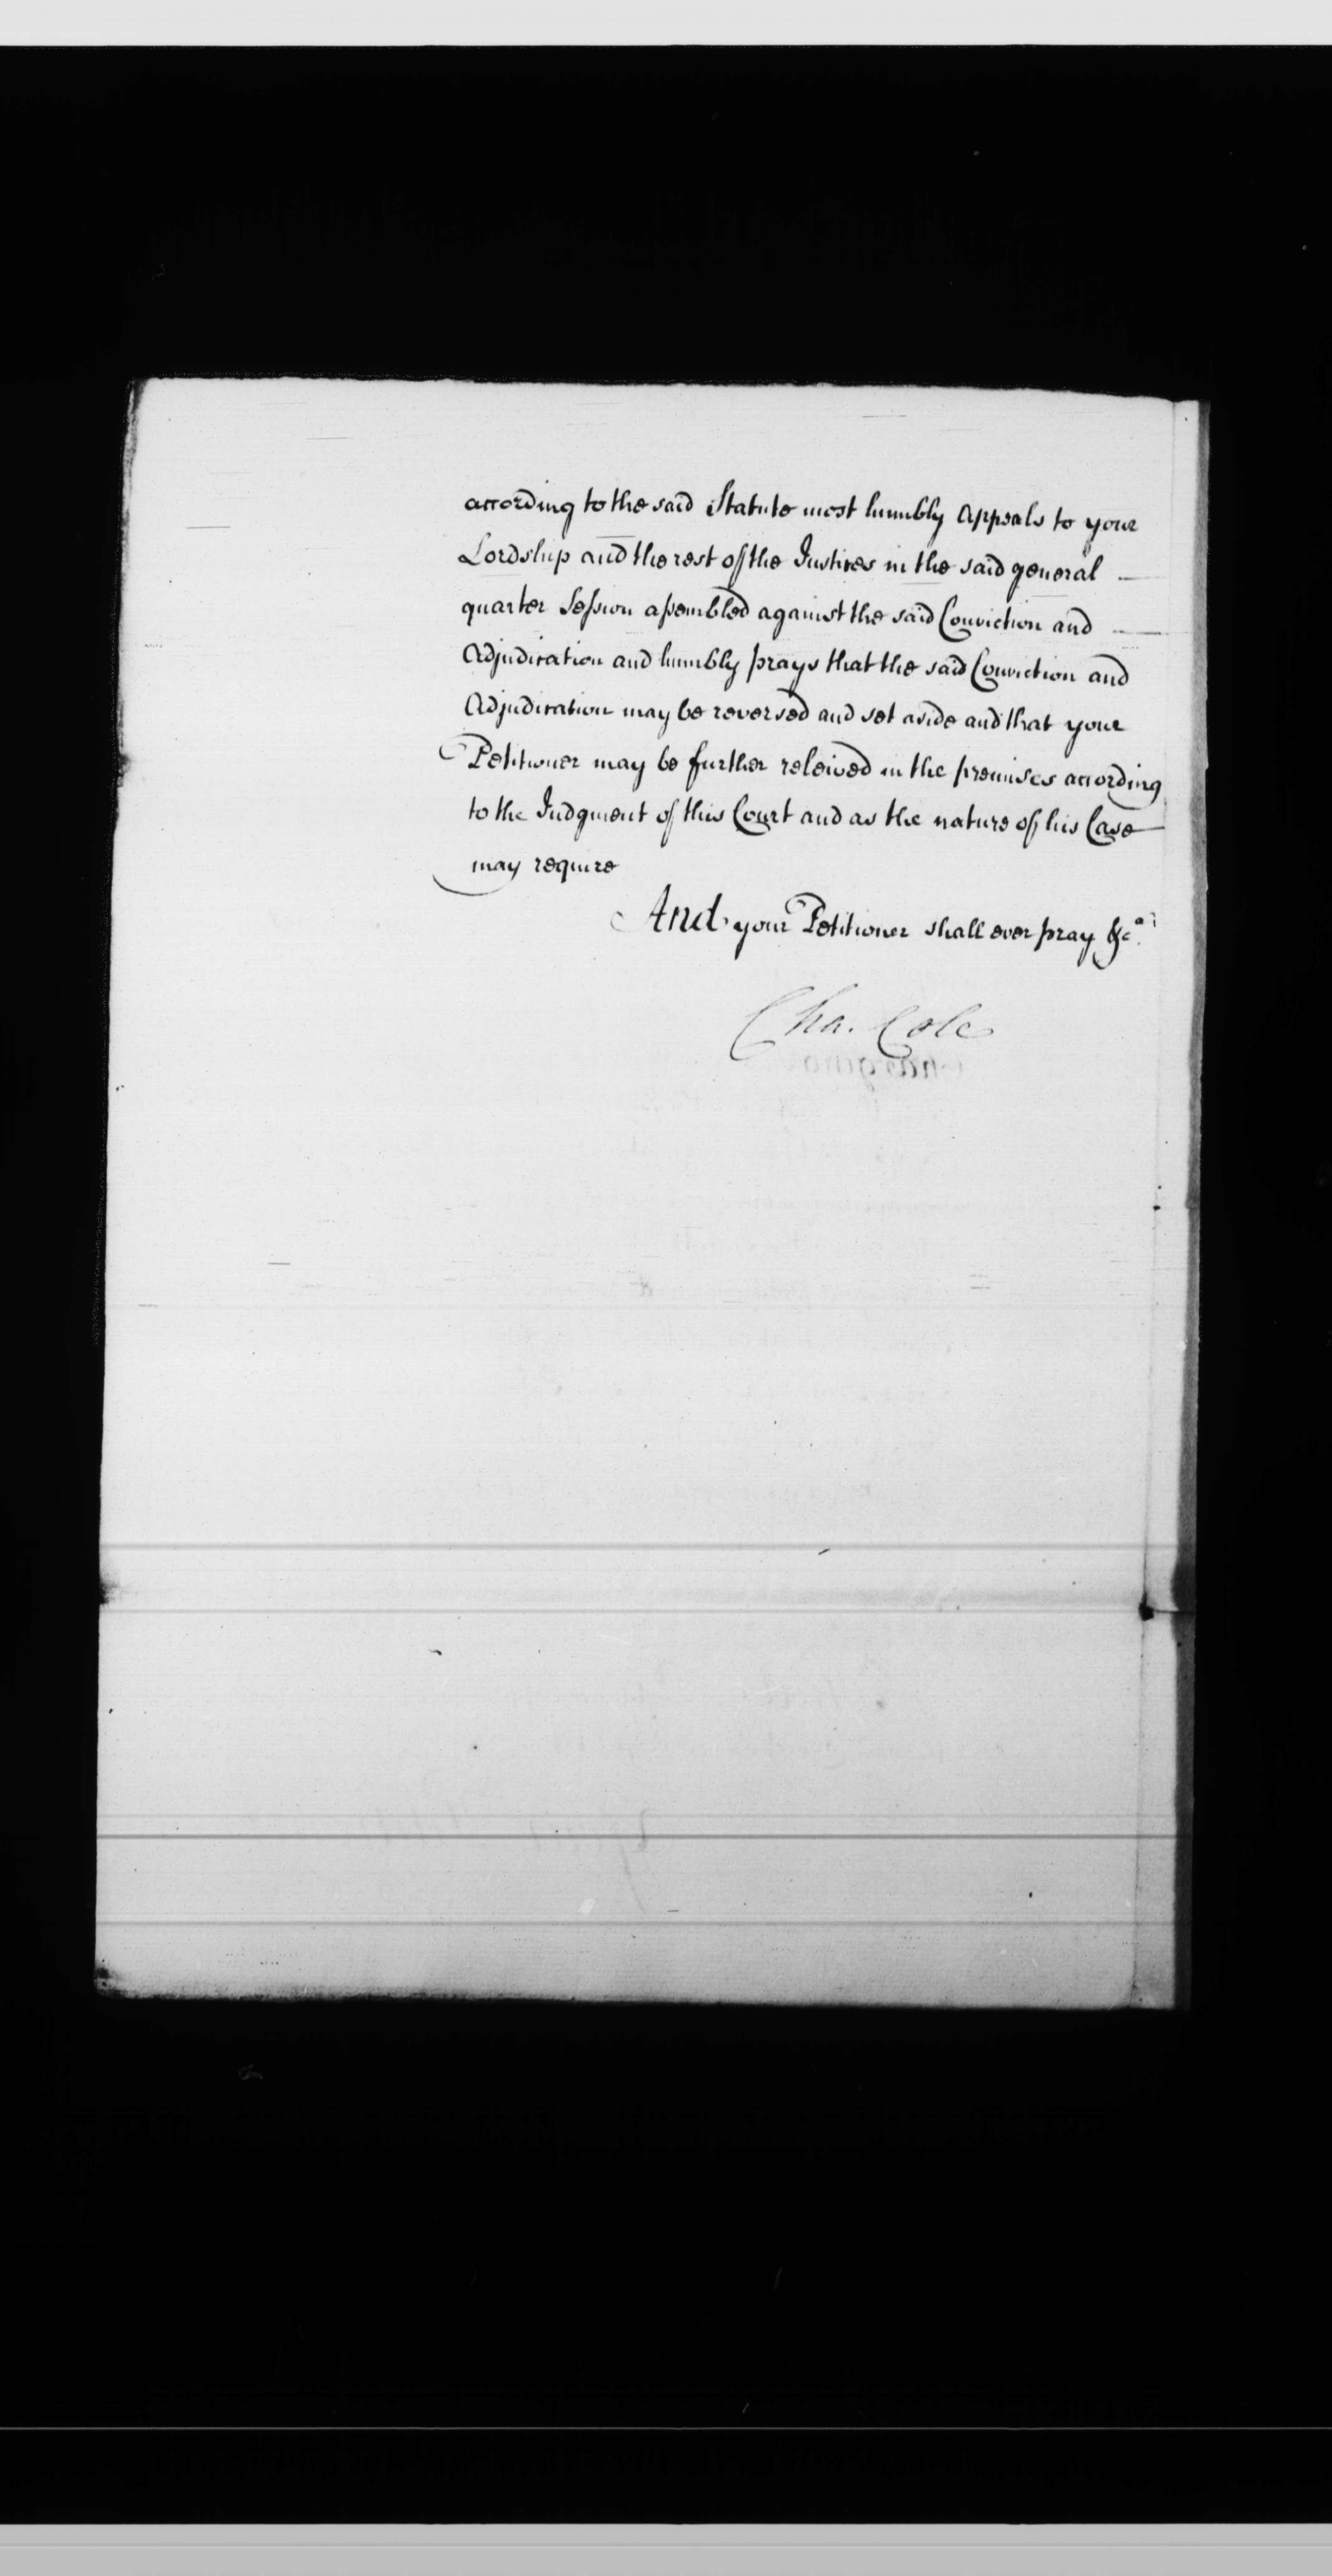 according to the said Statute most humbly Appeals to your
Lordship and the rest of the Justices in the said general
quarter Session assembled against the said Conviction and
Adjudication and humbly prays that the said Conviction and
Adjudication may be reversed and set aside and that your
Petitioner may be further releived in the premises according
to the Judgment of this Court and as the nature of his Case
may require
And your Petitioner shall ever pray &c.a
Cha. Cole